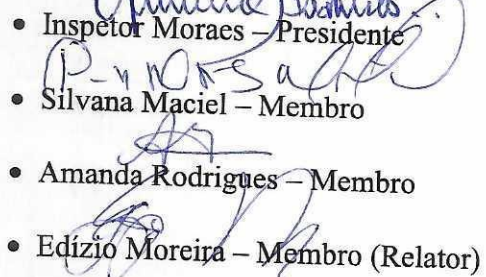 • Inspetor Moraes – Presidente
• Silvana Maciel – Membro
• Amanda Rodrigues – Membro
• Edízio Moreira – Membro (Relator)